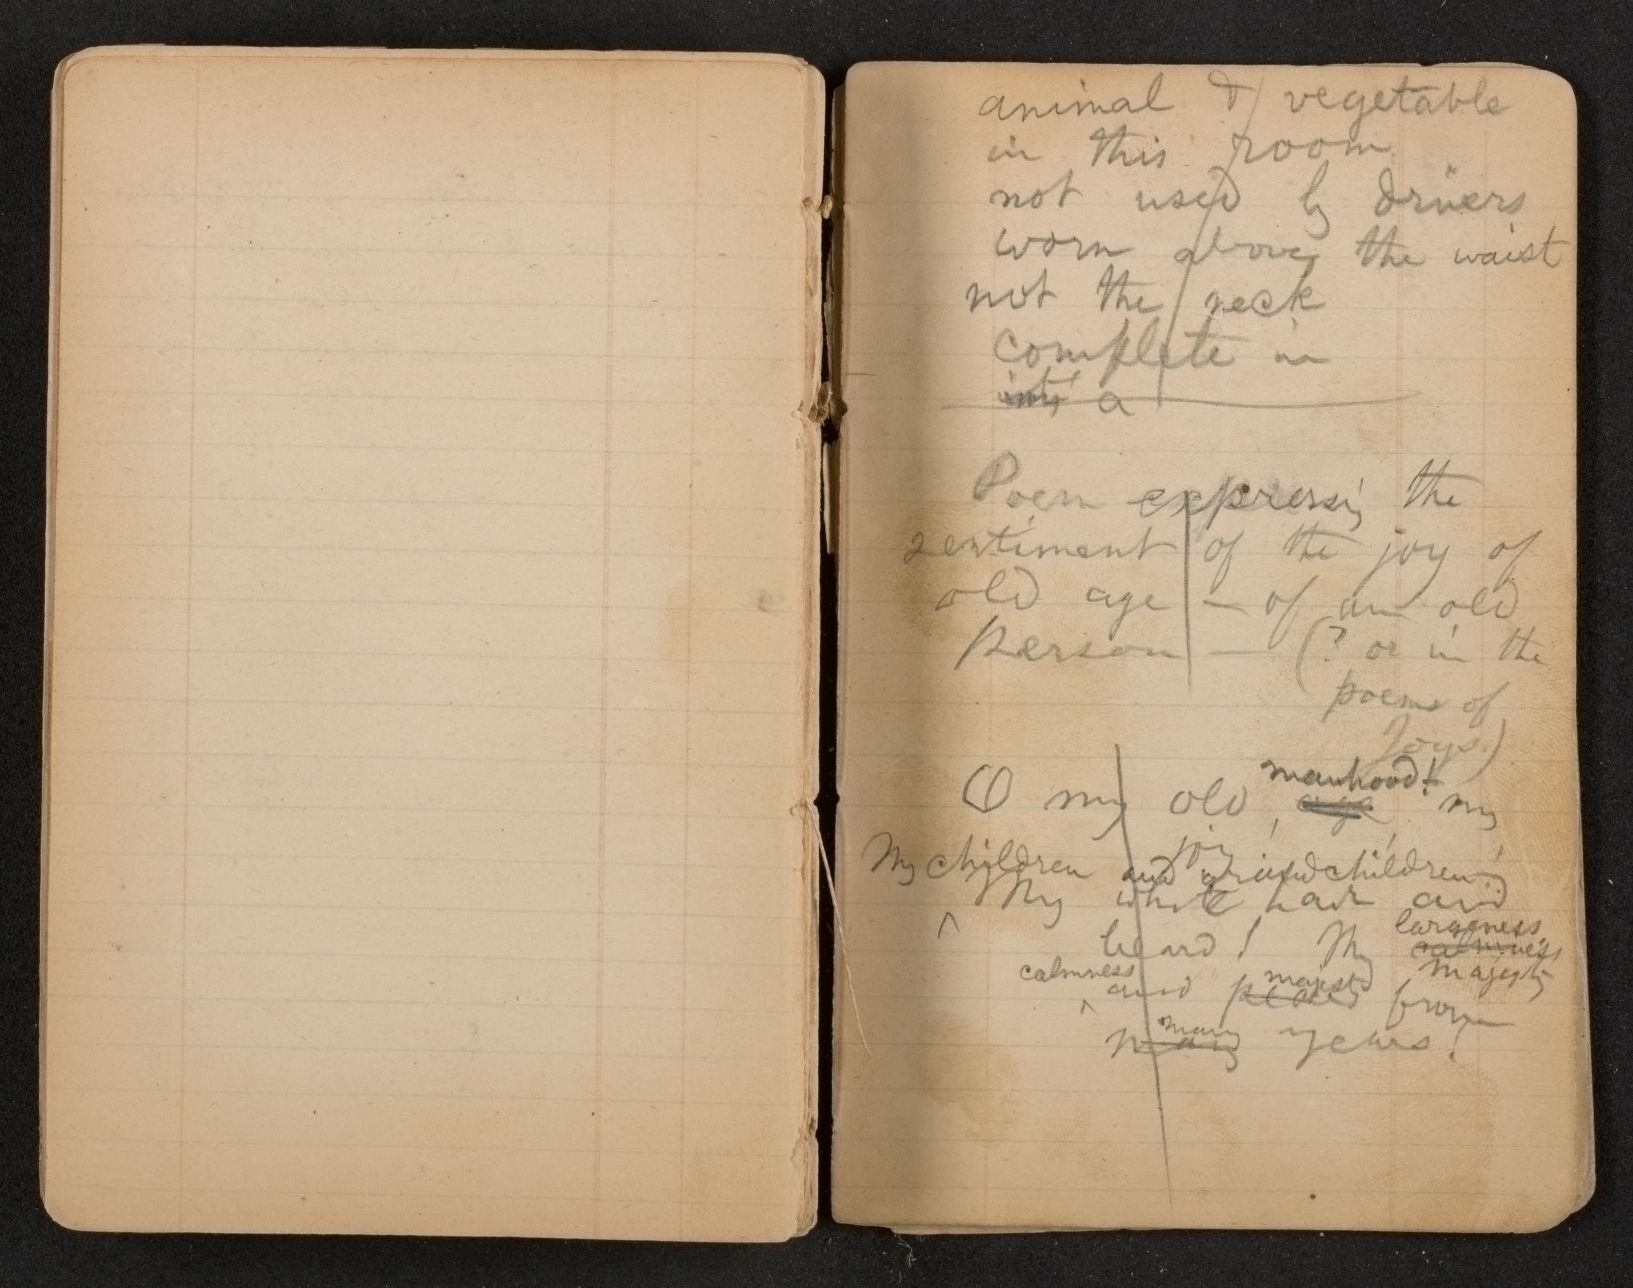 animal & vegetable
in this room
not used by drivers
worn above the waist
not the neck
complete in
a
Poem expressing the
sentiment of the joy of
old age — of an old
person — (? or in the
poems of
Joys.)
manhood!
O my old age my
joy!
My children and grandchildren!
My white hair and
largeness
beard! My calmness
majesty
calmness majesty
and from
many
many years!